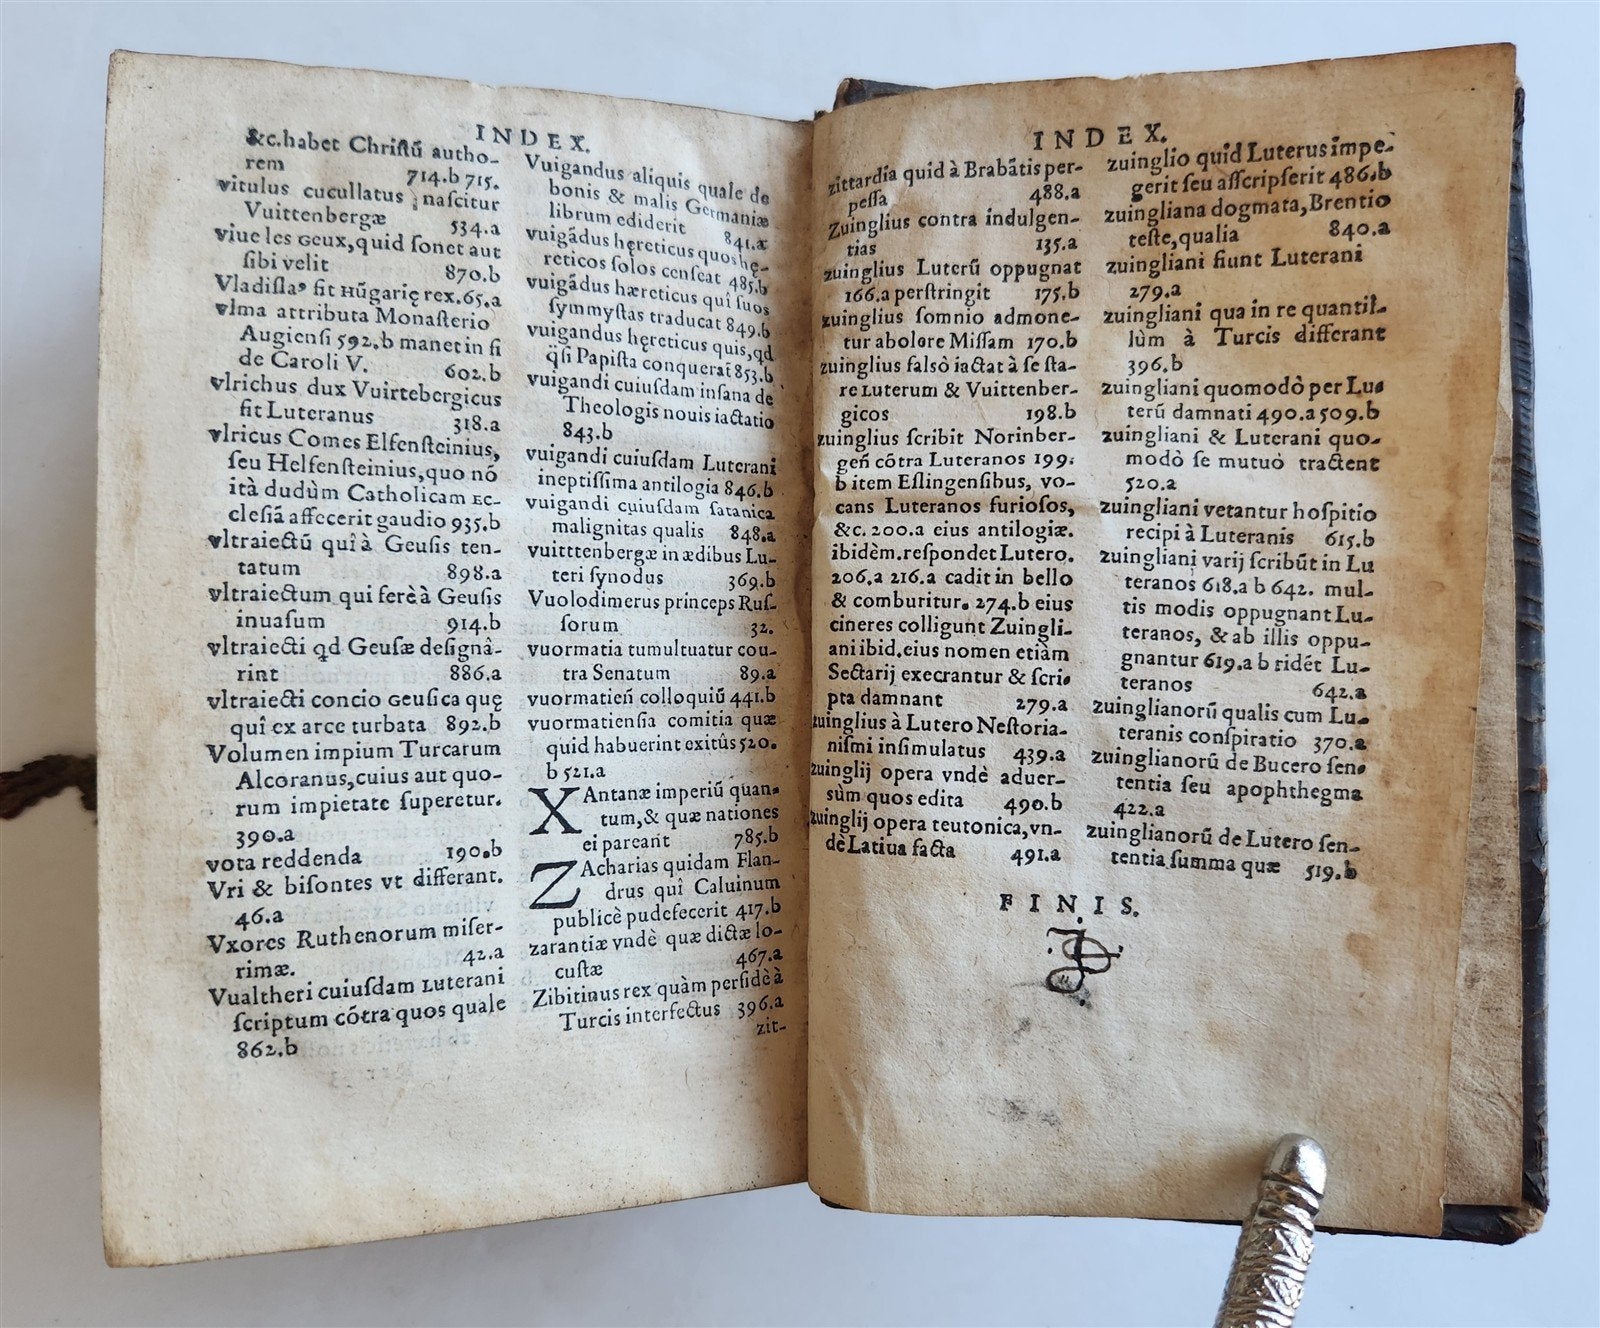 INDEX.
&c. habet Christū autho-
rem 714.b 715.
vitulus cucullatus nascitur
Vuittenbergæ 534.a
viue les Geux, quid sonet aut
sibi velit 870.b
Vladislaꝰ fit Hūgarię rex. 65.a
vlma attributa Monasterio
Augiensi 592.b manet in fi
de Caroli V. 602.b
vlrichus dux Vuirtebergicus
fit Luteranus 318.a
vlricus Comes Elfensteinius,
seu Helfensteinius, quo nō
ità dudùm Catholicam Ec-
clesiā affecerit gaudio 935.b
vltraiectū quî à Geusis ten-
tatum 898.a
vltraiectum qui ferè à Geusis
inuasum 914.b
vltraiecti qd Geusæ designâ-
rint 886.a
vltraiecti concio Geusica quę
quî ex arce turbata 892.b
Volumen impium Turcarum
Alcoranus, cuius aut quo-
rum impietate superetur.
390.a
vota reddenda 190.b
Vri & bisontes vt differant.
46.a
Vxores Ruthenorum miser-
rimæ. 42.a
Vualtheri cuiusdam Luterani
scriptum cōtra quos quale
862.b
Vuigandus aliquis quale de
bonis & malis Germaniæ
librum ediderit 841.a
vuigādus hęreticus quos hę-
reticos solos censeat 485.b
vuigādus hæreticus quî suos
symmystas traducat 849.b
vuigandus hęreticus quis, qd
q̃si Papista conquerat 853.b
vuigandi cuiusdam insana de
Theologis nouis iactatio
843.b
vuigandi cuiusdam Luterani
ineptissima antilogia 846.b
vuigandi cuiusdam satanica
malignitas qualis 848.a
vuitttenbergæ in ædibus Lu-
teri synodus 369.b
Vuolodimerus princeps Rus-
sorum 32.
vuormatia tumultuatur cou-
tra Senatum 89.a
vuormatieñ colloquiū 441.b
vuormatiensia comitia quæ
quid habuerint exitûs 520.
b 521.a
XAntanæ imperiū quan-
tum, & quæ nationes
ei pareant 785.b
ZAcharias quidam Flan-
drus quî Caluinum
publicè pudefecerit 417.b
zarantiæ vndè quæ dictæ lo-
custæ 467.a
Zibitinus rex quàm persidè à
Turcis interfectus 396.a
zit-
INDEX.
zittardia quid à Brabātis per-
pessa 488.a
Zuinglius contra indulgen-
tias 135.a
zuinglius Luterū oppugnat
166.a perstringit 175.b
zuinglius somnio admone-
tur abolere Missam 170.b
zuinglius falsò iactat à se sta-
re Luterum & Vuittenber-
gicos 198.b
zuinglius scribit Norinber-
geñ cōtra Luteranos 199.
b item Eslingensibus, vo-
cans Luteranos furiosos,
&c. 200.a eius antilogiæ.
ibidèm. respondet Lutero.
206.a 216.a cadit in bello
& comburitur. 274.b eius
cineres colligunt Zuingli-
ani ibid. eius nomen etiàm
Sectarij execrantur & scri-
pta damnant 279.a
zuinglius à Lutero Nestoria-
nismi insimulatus 439.a
zuinglij opera vndè aduer-
sùm quos edita 490.b
zuinglij opera teutonica, vn-
dè Latiua facta 491.a
zuinglio quid Luterus impe-
gerit seu asscripserit 486.b
zuingliana dogmata, Brentio
teste, qualia 840.a
zuingliani fiunt Luterani
279.a
zuingliani qua in re quantil-
lùm à Turcis differant
396.b
zuingliani quomodò per Lu-
terū damnati 490.a 509.b
zuingliani & Luterani quo-
modò se mutuò tractent
520.a
zuingliani vetantur hospitio
recipi à Luteranis 615.b
zuingliani varij scribūt in Lu
teranos 618.a b 642. mul-
tis modis oppugnant Lu-
teranos, & ab illis oppu-
gnantur 619.a b ridēt Lu-
teranos 642.a
zuinglianorū qualis cum Lu-
teranis conspiratio 370.a
zuinglianorū de Bucero sen-
tentia seu apophthegma
422.a
zuinglianorū de Lutero sen-
tentia summa quæ 519.b
FINIS.